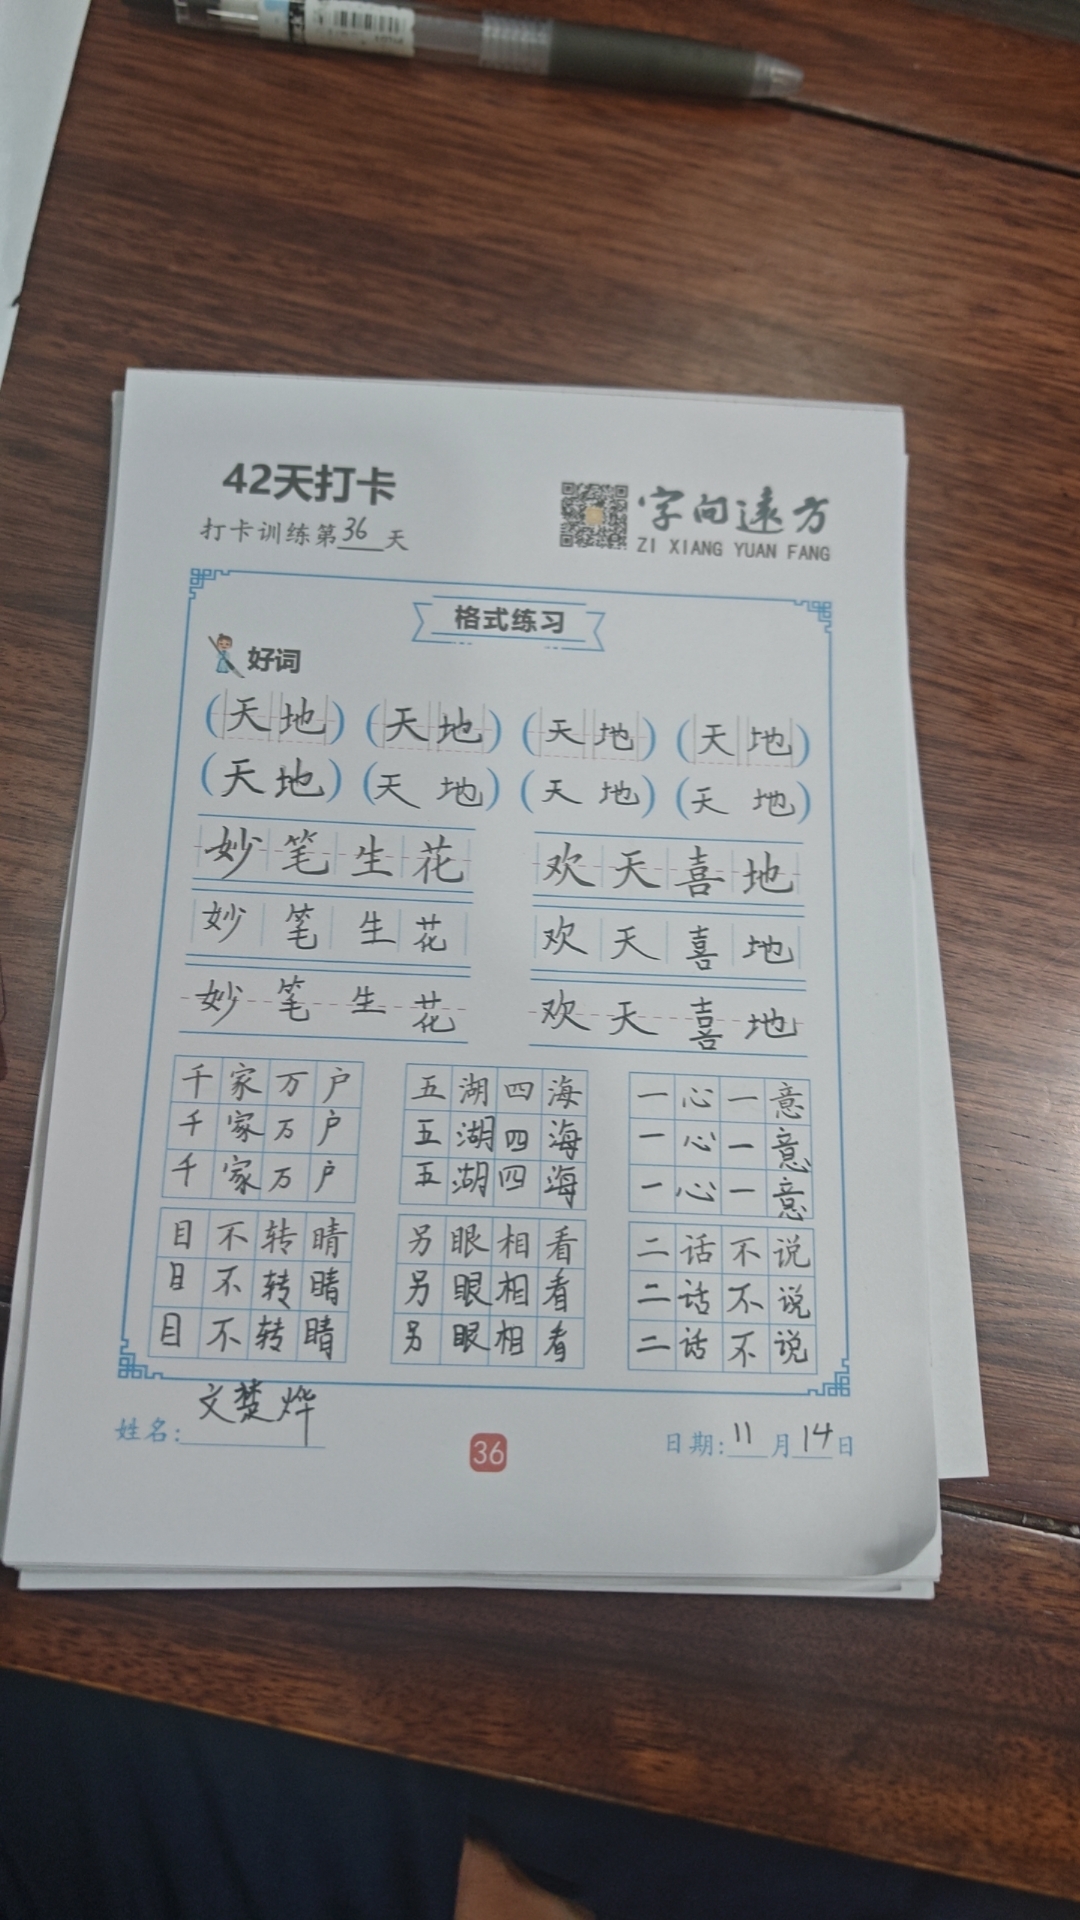 42天打卡
打卡训练第36天
字向远方
ZI XIANG YUAN FANG
格式练习
好词
(天地) (天地) (天地) (天地)
(天地) (天地) (天地) (天地)
妙笔生花 欢天喜地
妙笔生花 欢天喜地
妙笔生花 欢天喜地
千家万户 五湖四海 一心一意
千家万户 五湖四海 一心一意
千家万户 五湖四海 一心一意
目不转睛 另眼相看 二话不说
目不转睛 另眼相看 二话不说
目不转睛 另眼相看 二话不说
姓名:文楚烨
36
日期:11月14日